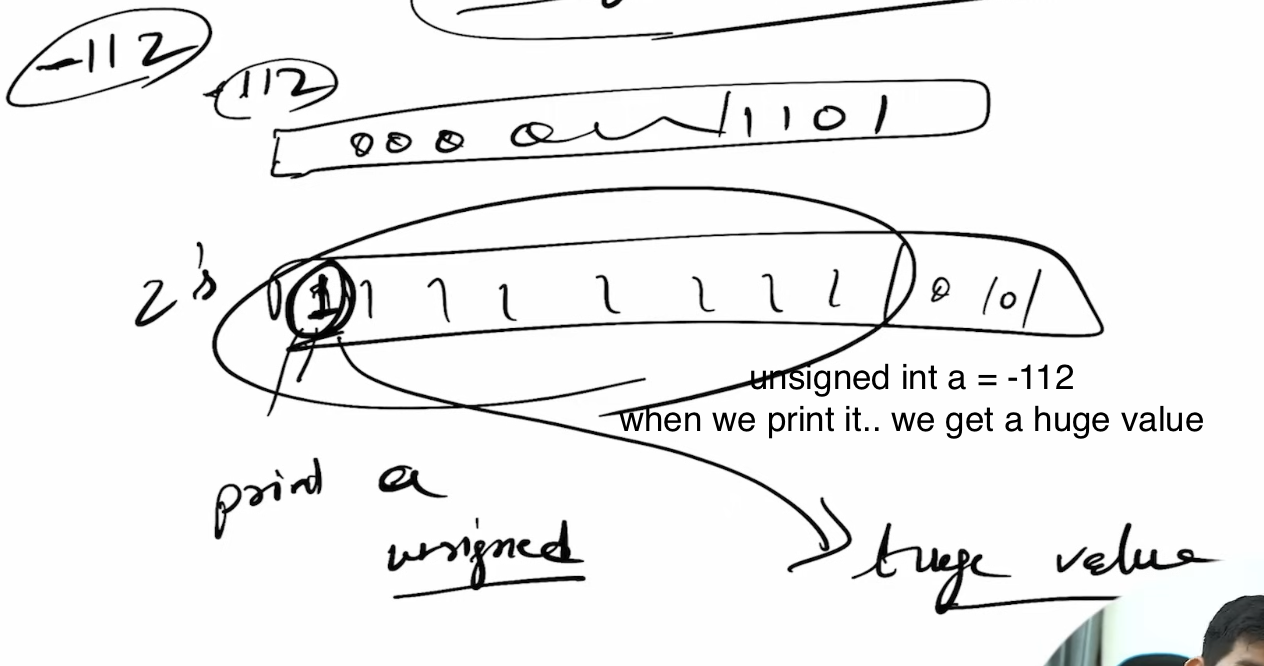 -112
112
000 1101
2's 1 1 1 1 1 1 1 1 0 101
unsigned int a = -112
when we print it.. we get a huge value
print a
unsigned
huge value